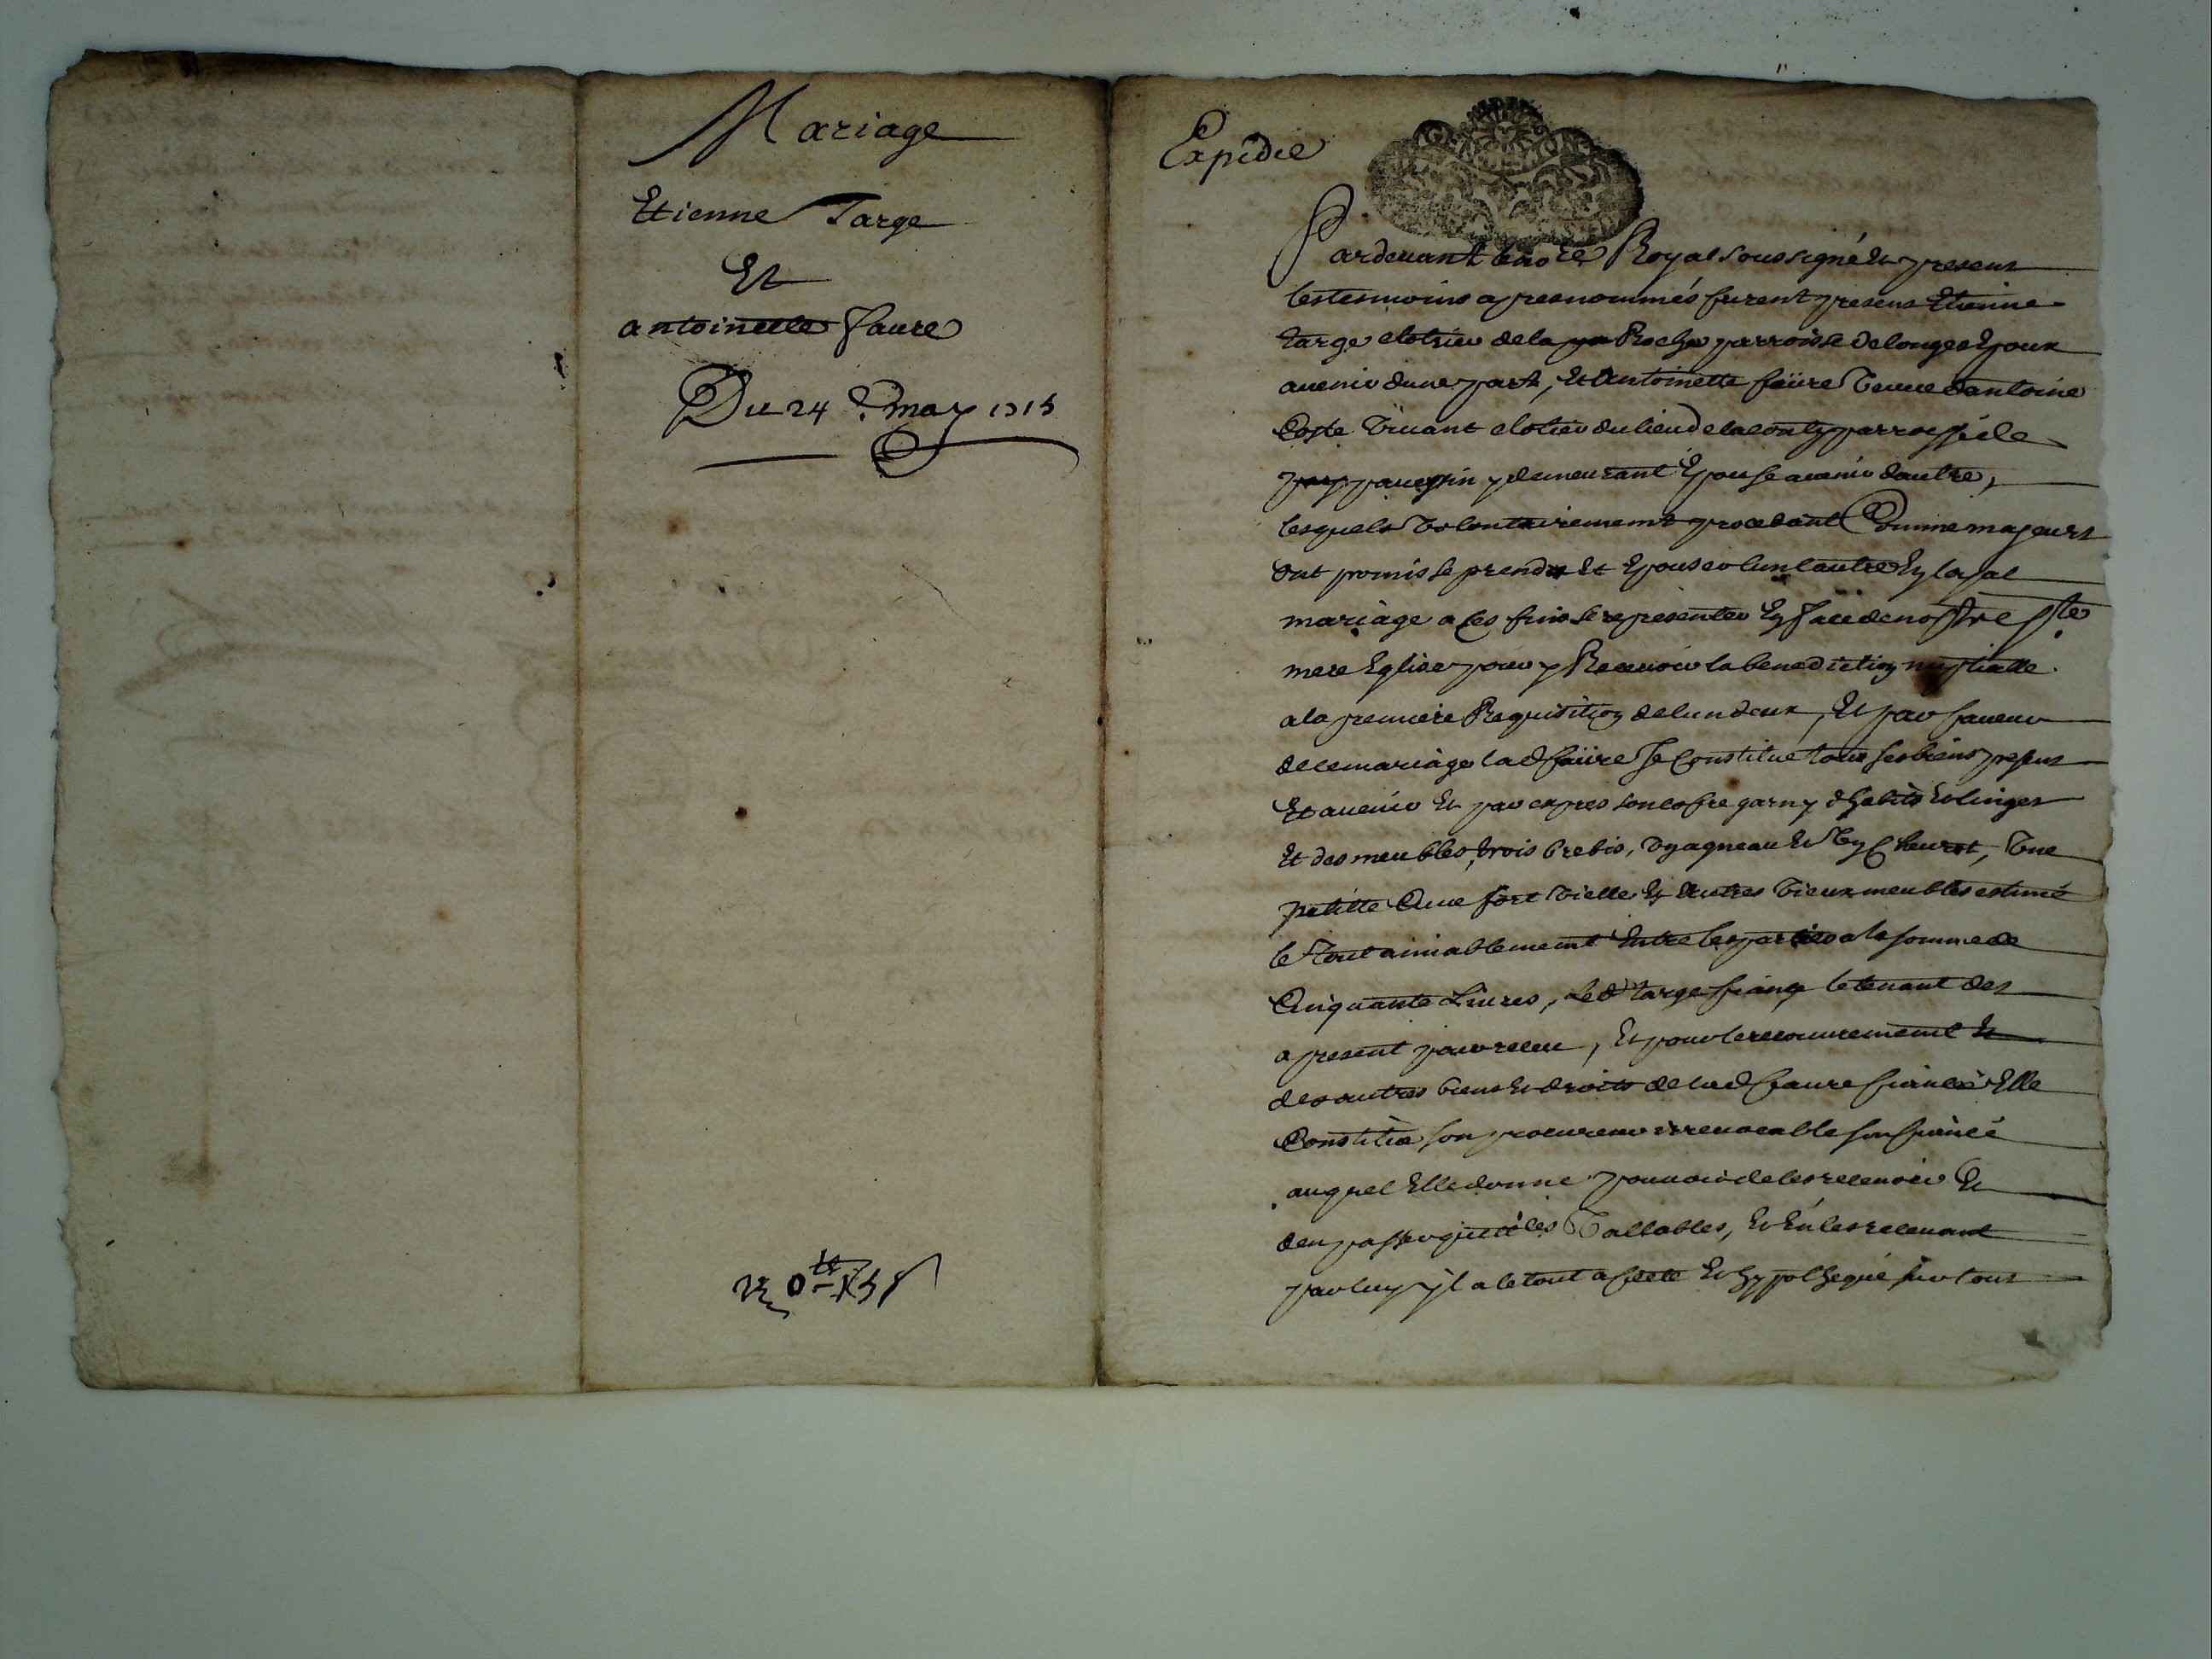 Mariage
Etienne Targe
Et
antoinette faure
Du 24 may 1715
Expedié
Pardevant le no re Royal soussigné Et presens
les tesmoins apres nommés furent presens Etienne
targe clotrier de la Roche parroisse de longes Epoux
avenir dune part, Et Antoinette faüre veuve dantoine
Coste vivant clotier du lieu de parroisse de
pavezin y demeurant Epouse avenir dautre,
lesquels volontairement procedant Comme majeurs
ont promis se prendre Et Epouser lun lautre En loyal
mariàge a ces fins se representer En face de nostre ste
mere Eglise pour y Recevoir la benediction nuptialle
a la premiere Requisition de lun deux, Et par faveur
de ce mariàge lad faüre se Constitué tous ses biens presens
Et avenir Et par expres son cofre garny dhabits Et linges
Et des meubles, trois brebis, vn agneau Et vn Chevrot, vne
petitte Cuve fort vielle Et Autres vieux meubles estimé
le Tout amiablement Entre les parties a la somme de
Cinquante Livres, led targe fiancé le tenant des
a present pour receu, Et pour le recouvrement Et
des autres biens Et droits de lad faure fiancée Elle
Constitüe son procureur irrevocable son fiancé
auquel Elle donne pouvoir de les recevoir Et
den passer quittces Vallables, Et En les recevant
par luy jl a le tout afecté Et hypothequé sur tous